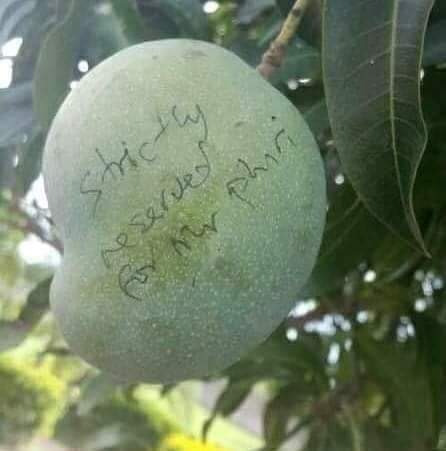 Strictly
reserved
for mr phiri